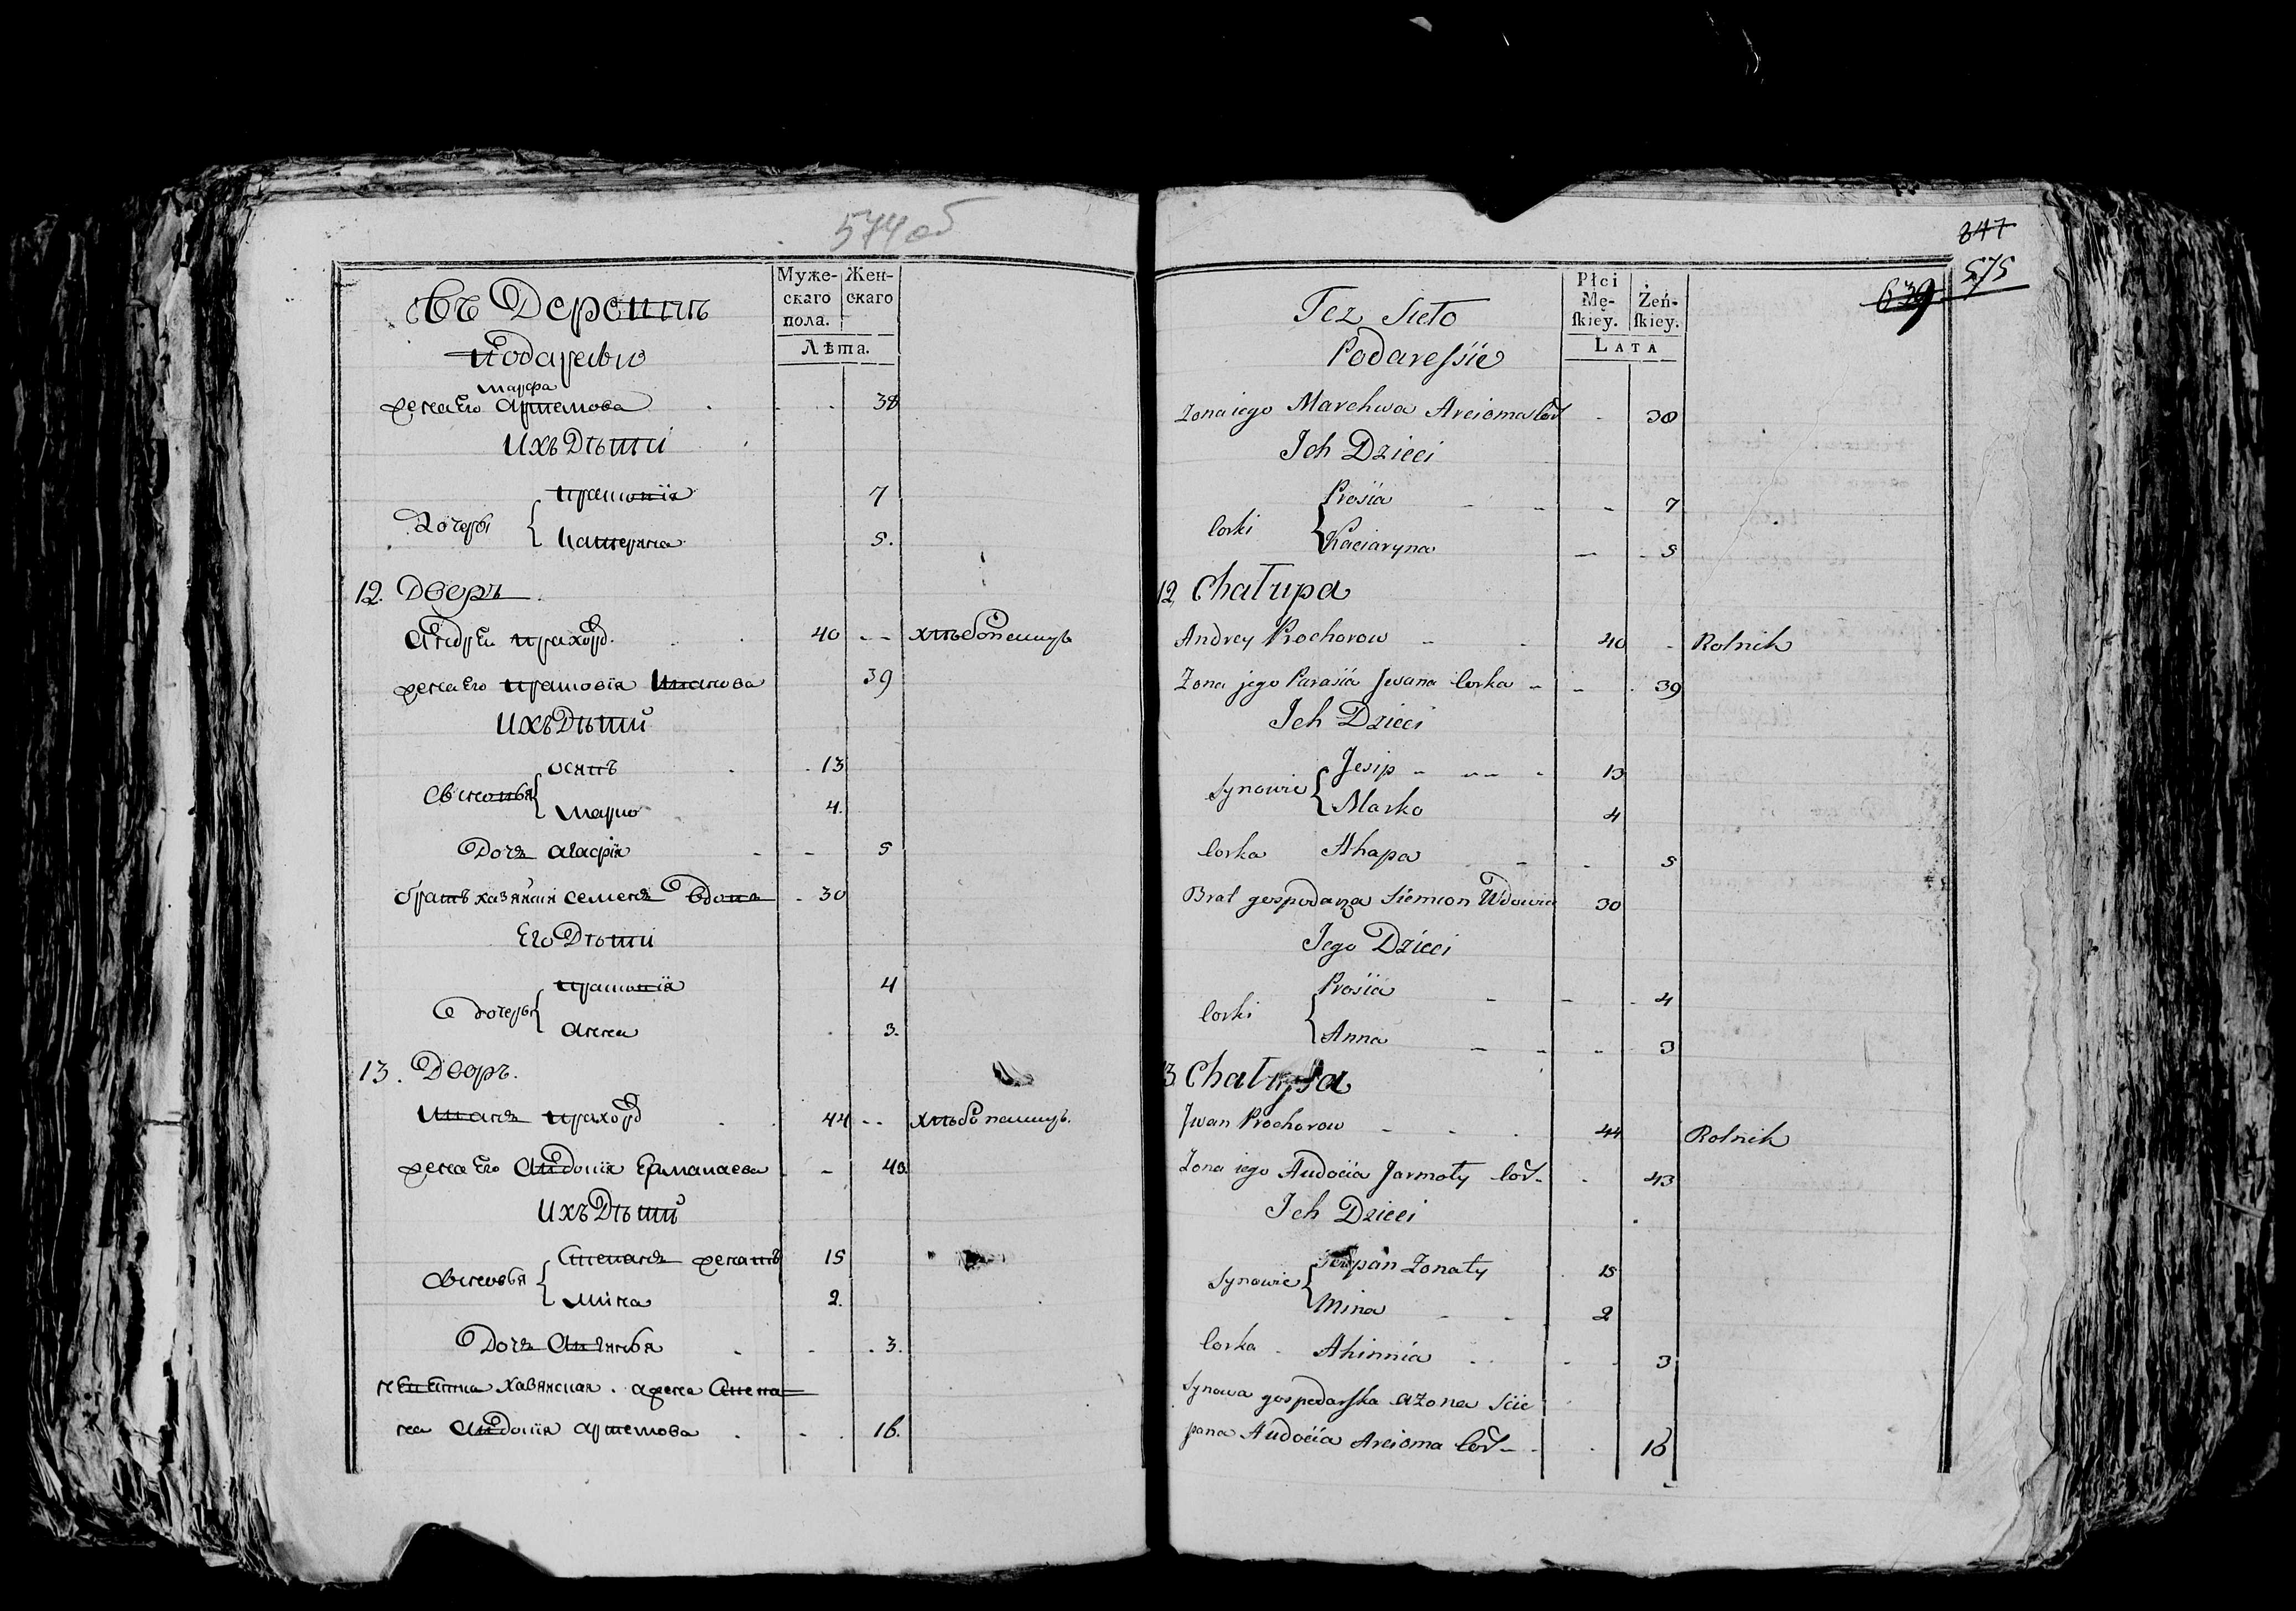 574 об
Въ Деревнѣ
Подаресы
Муже-скаго пола. Жен-скаго
Лѣта.
Марфа
жена Его Артемова 38
Ихъ Дѣти
Дочери
Прасковія 7
Катерина 5.
12. Дворъ
Андрей Прахоро 40 хлѣбопашецъ
жена Его Прасковія Иванова 39
Ихъ Дѣти
Сыновья
Осипъ 13
Марко 4.
Дочь Агафія 5
братъ хазяина Семенъ вдовъ 30
Его Дѣти
Дочери
4
Анна 3.
13. Дворъ.
Иванъ Прахоро 44 хлѣбопашецъ.
жена Его Авдотія Ермалаева 43
Ихъ Дѣти
Сыновья
Степанъ женатъ 15
Мина 2.
Дочь 3.
хазяиская. а жена Степа
на Авдотія Артемова 16.
847
575
639
Też Sieło
Podaressie
Płci Mę-skiey. Żeń-skiey.
LATA
Zona iego Marchwa Arcioma Cor 38
Ich Dzieci
Corki
Prosia 7
Kaciaryna 5
12. Chałupa
Andrey Prochorow 40 Rolnik
Zona jego Parasia Jwana Corka 39
Ich Dzieci
Synowie
Jesip 13
Marko 4
Corka Ahapa 5
Brat gospodarza Siemion Wdowiec 30
Jego Dzieci
Corki
Prosia 4
Anna 3
13. Chałupa
Jwan Prochorow 44 Rolnik
Zona iego Audocia Jarmoły Cor- 43
Ich Dzieci
Synowie
Sciepan Zonaty 15
Mina 2
Corka Ahinnia 3
Synowa gospodarska a Zona Scie
pana Audocia Arcioma Cor- 16